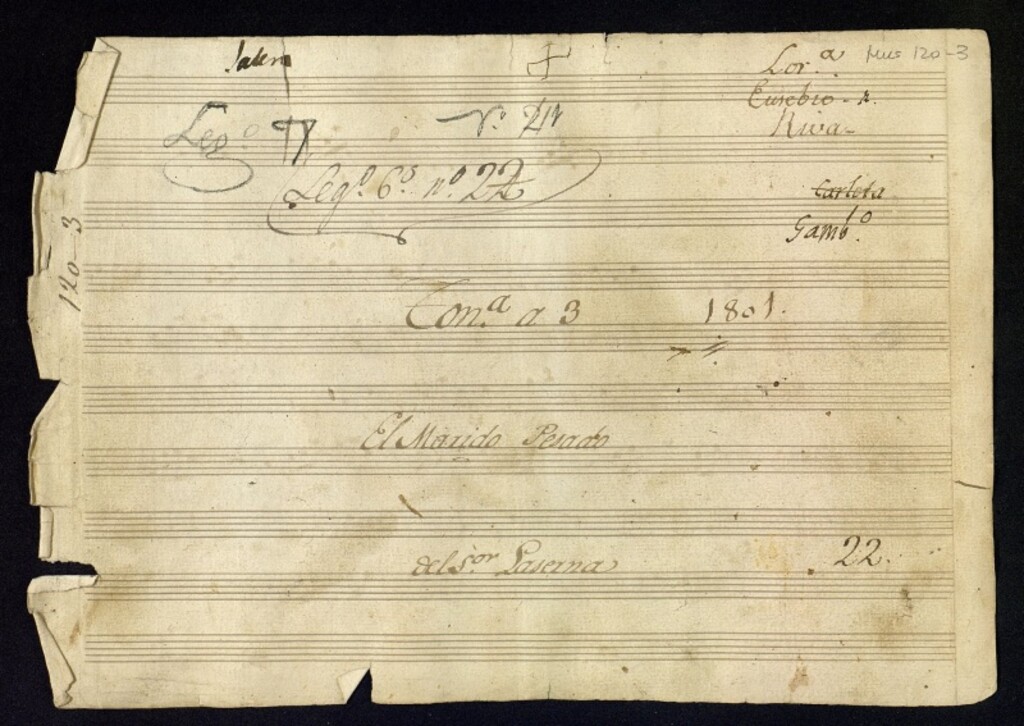 Lor.ª Mus 120-3
Eusebio - r.
Riva-
Leg.º
Leg.º 6.º n.º 22
Carlota
Gamb.º
120-3
Ton.ª a 3 1801.
El Marido Pesado
del S.or Laserna
22.